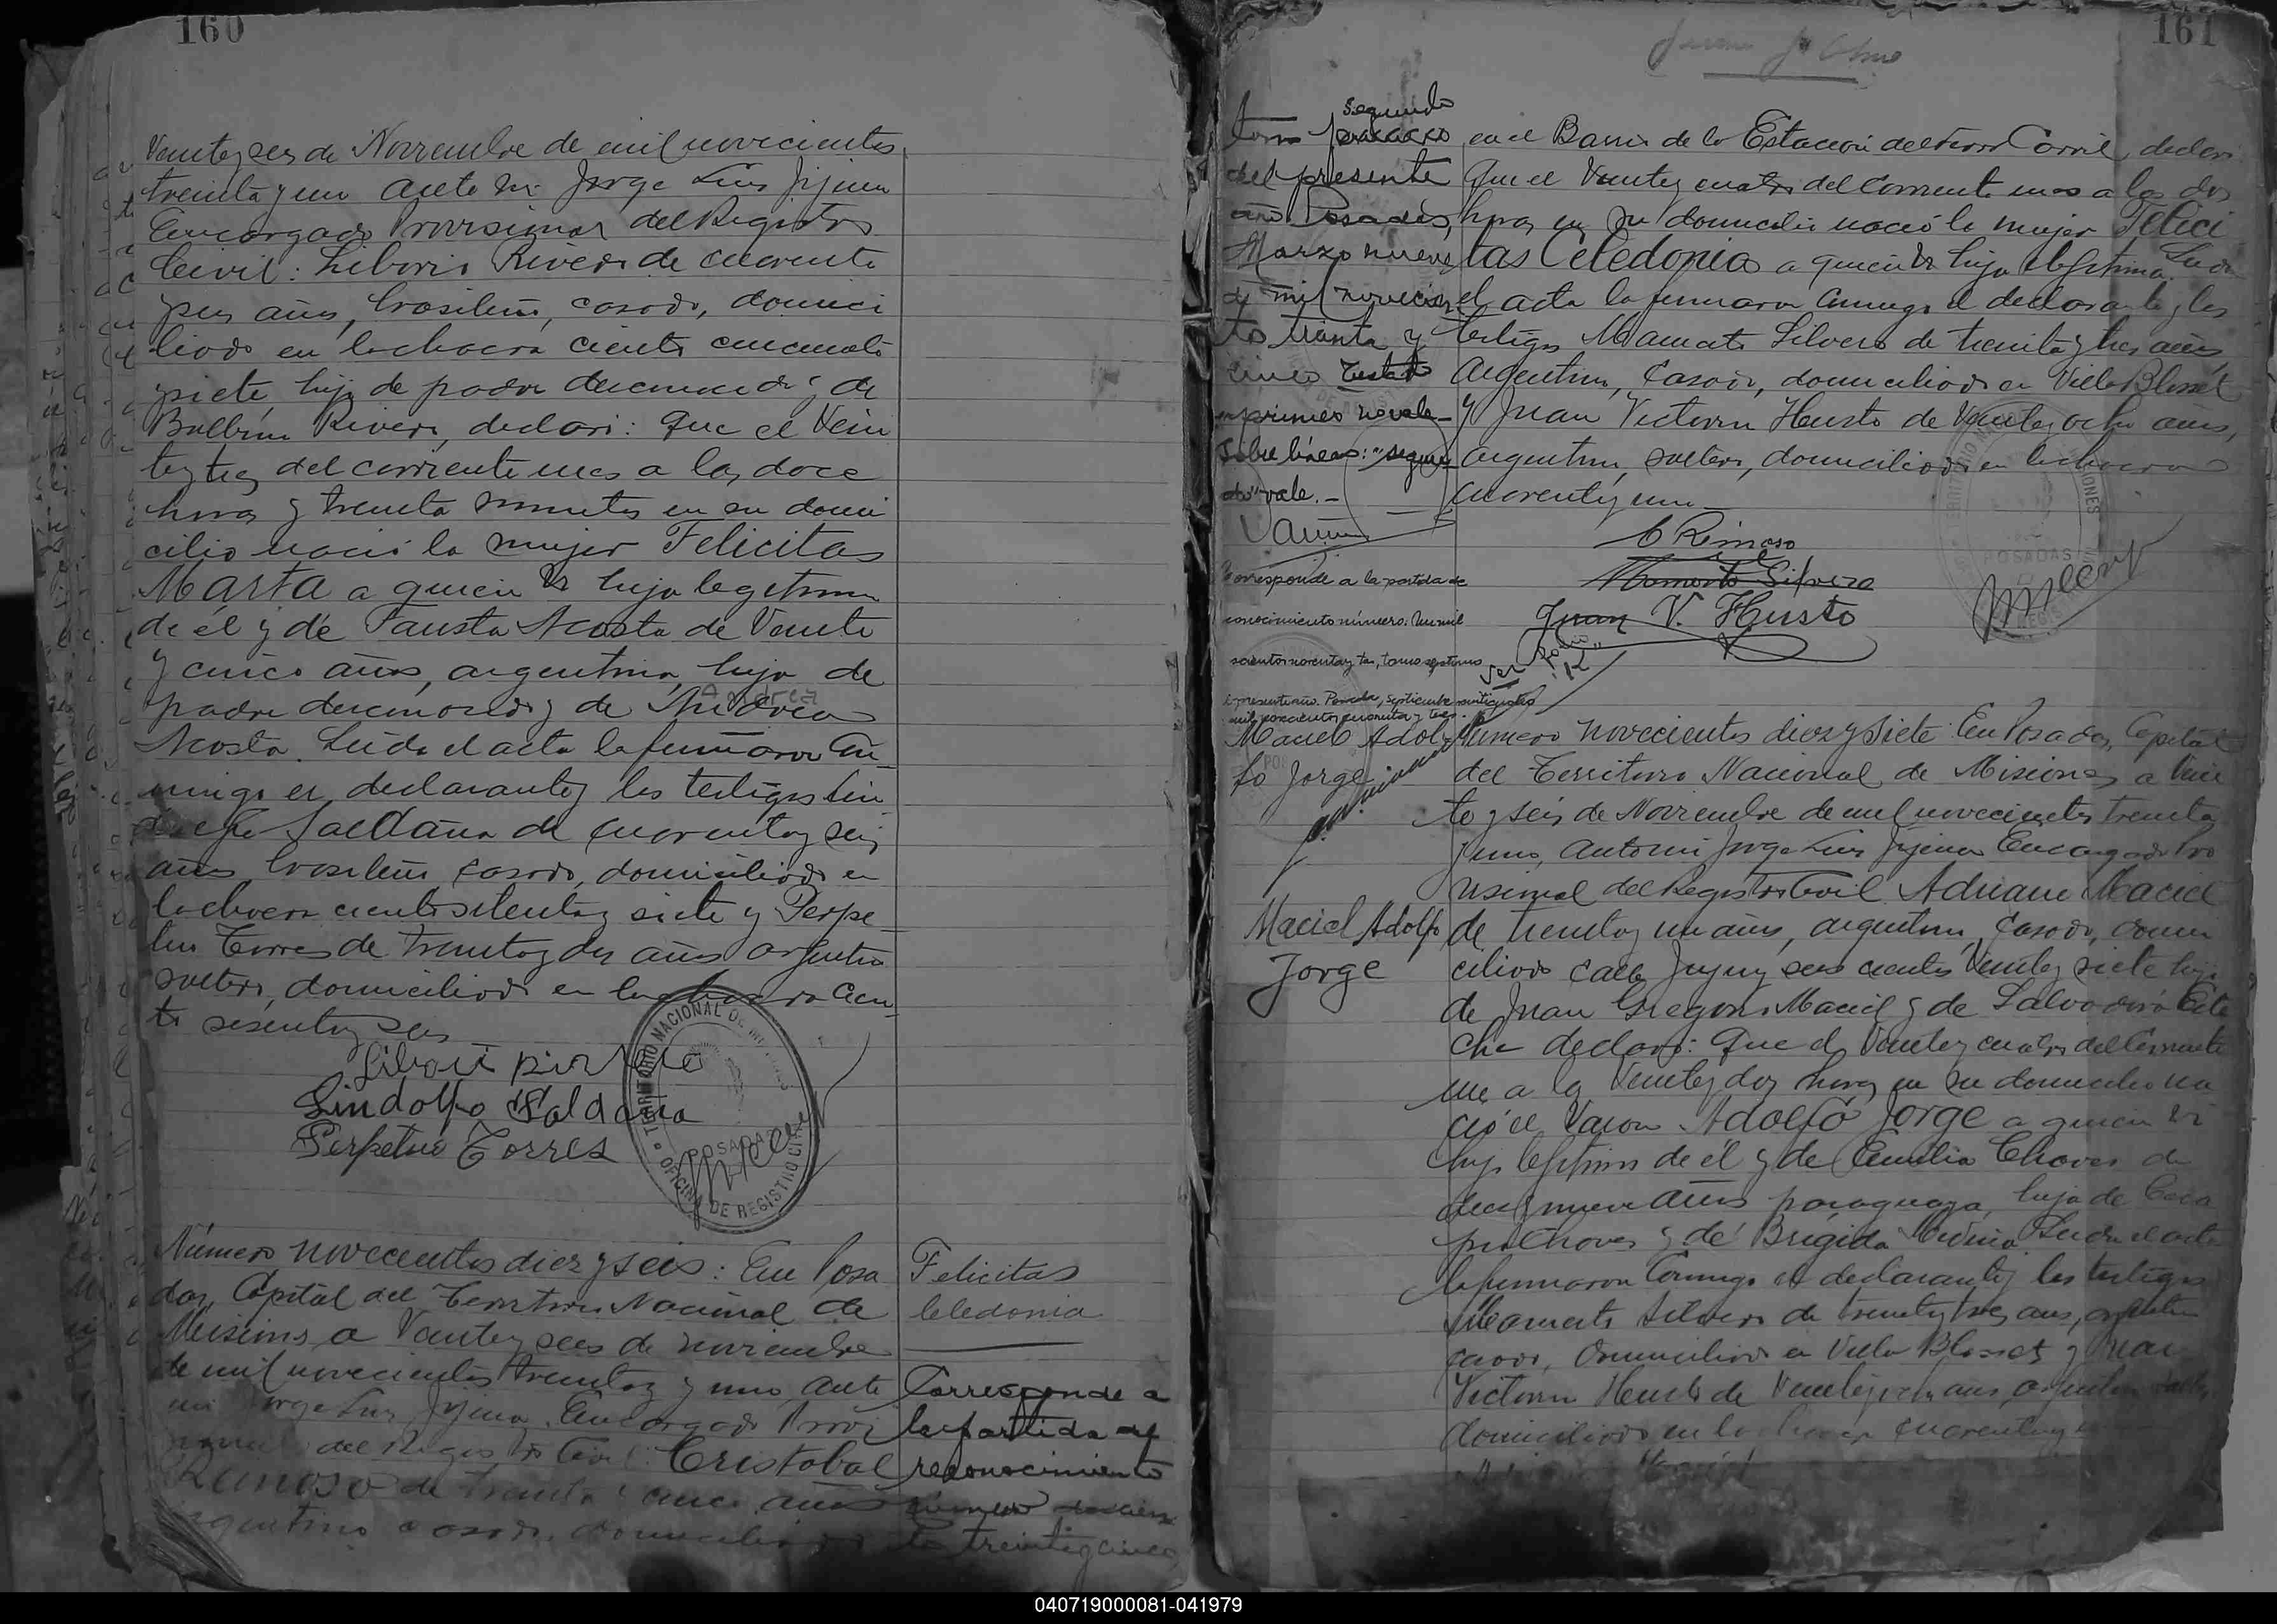 160
Veinte y seis de Noviembre de mil novecientos
treinta y uno ante mi Jorge Luis Jijena
Encargado Provisional del Registro
Civil: Liborio Rivero de cuarenta
y seis años, brasileño, casado, domici
liado en la chacra ciento cincuenta
y siete, hijo de padre desconocido y de
Balbina Rivero, declaró: Que el Vein
te y tres del corriente mes a las doce
horas y treinta minutos en su domi
cilio nació la mujer Felicitas
Marta a quien vi hija legitima
de él y de Fausta Acosta de Veinte
y cinco años, argentina, hija de
padre desconocido y de Andrea
Andrea
Acosta. Leida el acta la firmaron con
migo el declarante y los testigos Lin
dolfo Saldaña de cuarenta y seis
años brasileño casado, domiciliado en
la chacra ciento setenta y siete y Perpe
tuo Torres de treinta y dos años argentino
soltero, domiciliado en la chacra cien
to sesenta y seis
Lindolfo Saldaña
Perpetuo Torres
TERRITORIO NACIONAL DE MISIONES
POSADAS
OFICINA DE REGISTRO CIVIL
Número novecientos diez y seis: En Posa
das, Capital del Territorio Nacional de
Misiones a Veinte y seis de noviembre
de mil novecientos treinta y uno ante
mi Jorge Luis Jijena Encargado Provi
sional del Registro Civil: Cristobal
Reinoso de treinta y cinco años
argentino casado, domiciliado
Felicitas
Celedonia
Corresponde a
la partida de
reconocimiento
número
treinta y cinco
161
en el Barrio de la Estacion del Ferro Carril, declaró
Que el Veinte y cuatro del corriente mes a las dos
horas en su domicilio nació la mujer Felici
tas Celedonia a quien vi hija legitima. Leida
el acta la firmaron conmigo el declarante y los
testigos Mamerto Silvero de treinta y tres años,
Argentino, casado, domiciliado en Villa Blosset
y Juan Victorin Husto de Veinte y ocho años,
argentino, soltero, domiciliado en la chacra
cuarenta y uno
tomo segundo
del presente
año. Posadas,
Marzo nueve
de mil novecien
tos treinta y
cinco Testado
primero no vale
Sobre líneas: "segun
do" vale.-
C Reinoso
Mamerto Silvero
Juan V. Husto
Corresponde a la partida de
reconocimiento número: un mil
scientos noventa y tres, tomo séptimo
presente año. Posadas, Septiembre veinticuatro
mil novecientos cuarenta y tres.
Ver folio
Maciel Adol
fo Jorge
Maciel Adolfo
Jorge
Número novecientos diez y siete: En Posadas, Capital
del Territorio Nacional de Misiones a Vein
te y seis de Noviembre de mil novecientos treinta
y uno, ante mi Jorge Luis Jijena Encargado Pro
visional del Registro Civil Adriano Maciel
de treinta y un años, argentino, casado, domi
ciliado calle Jujuy seis cientos Veinte y siete hijo
de Juan Gregorio Maciel y de Salvadora
che declaró: Que el Veinte y cuatro del corriente
mes a las Veinte y dos horas en su domicilio na
ció el Varon Adolfo Jorge a quien vi
hijo legitimo de él y de Emilia Chaves de
diez y nueve años paraguaya, hija de
Chaves y de Brigida Medina. Leida el acta
la firmaron conmigo el declarante y los testigos
Mamerto Silvero de treinta y tres años, argentino
casado, domiciliado en Villa Blosset y Juan
Victorin Husto de Veinte y ocho años, argentino
domiciliado en la chacra cuarenta y
040719000081-041979